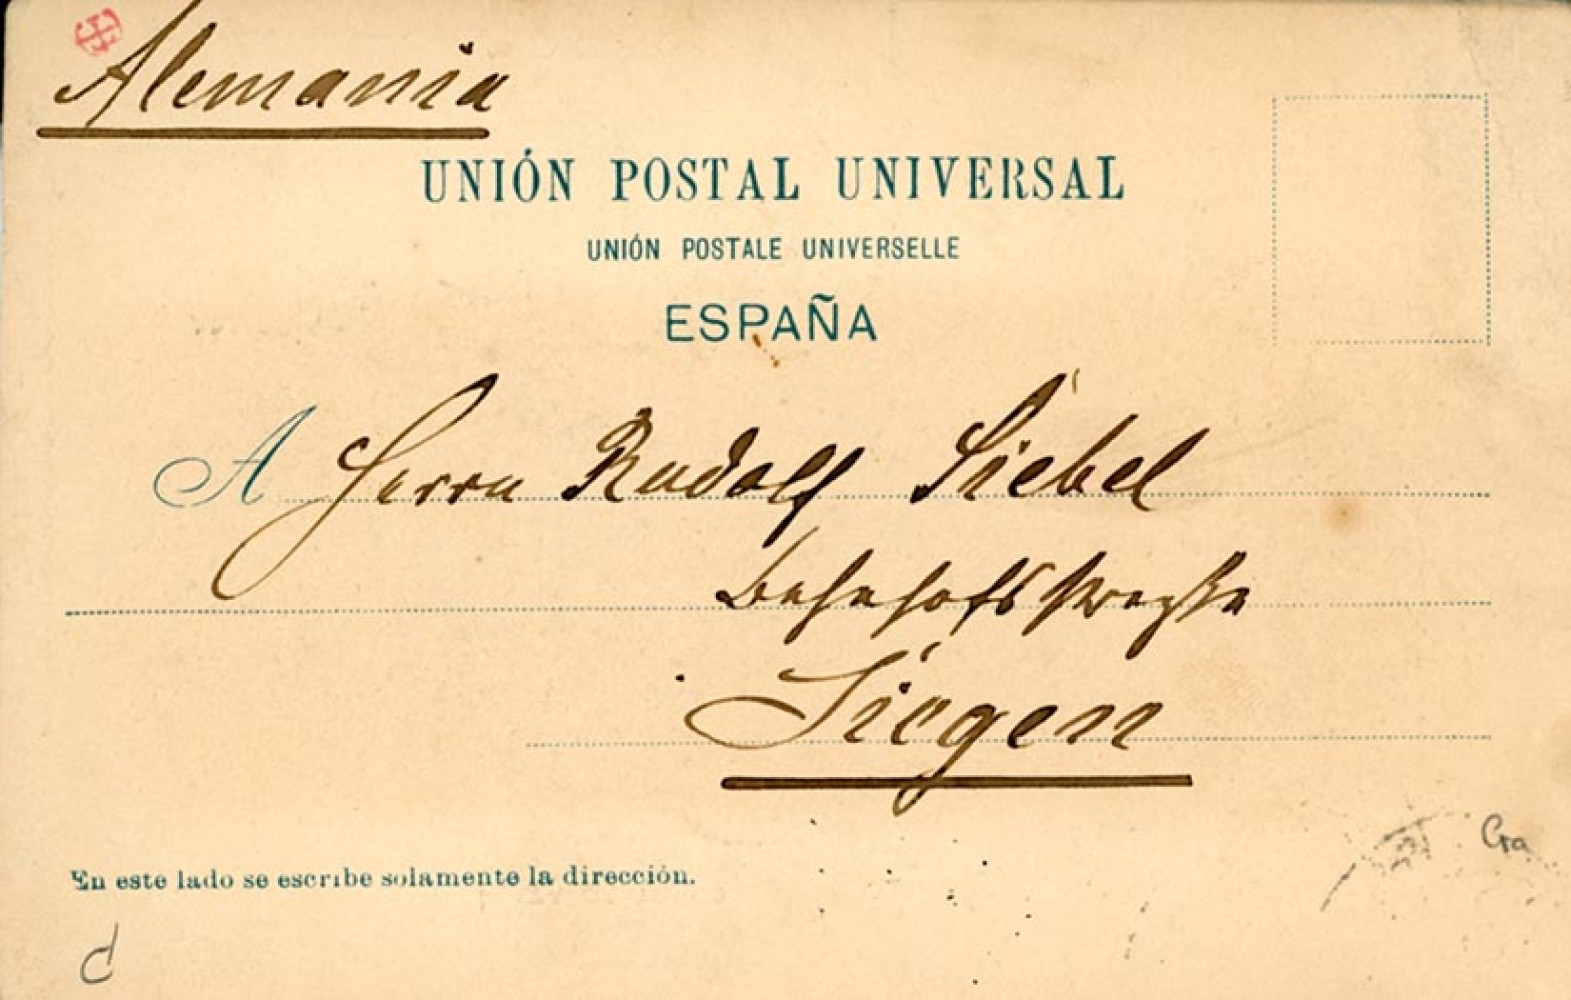 Alemania
UNIÓN POSTAL UNIVERSAL
UNIÓN POSTALE UNIVERSELLE
ESPAÑA
A Herrn Rudolf Siebel
Bahnhofsstraße
Siegen
En este lado se escribe solamente la dirección.